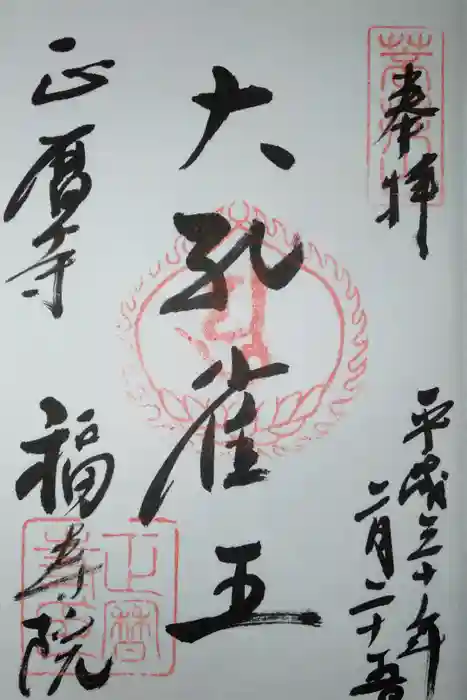 奉拝
平成三十年
二月二十五
大孔雀王
正暦寺 福寿院